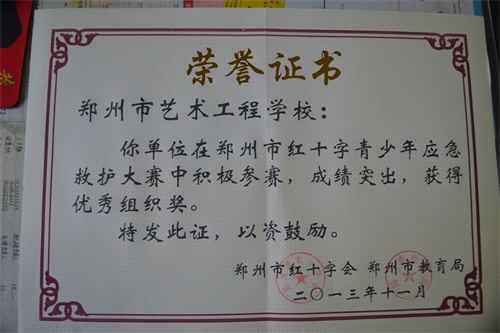 荣誉证书
郑州市艺术工程学校：
你单位在郑州市红十字青少年应急
救护大赛中积极参赛，成绩突出，获得
优秀组织奖。
特发此证，以资鼓励。
郑州市红十字会 郑州市教育局
二〇一三年十一月